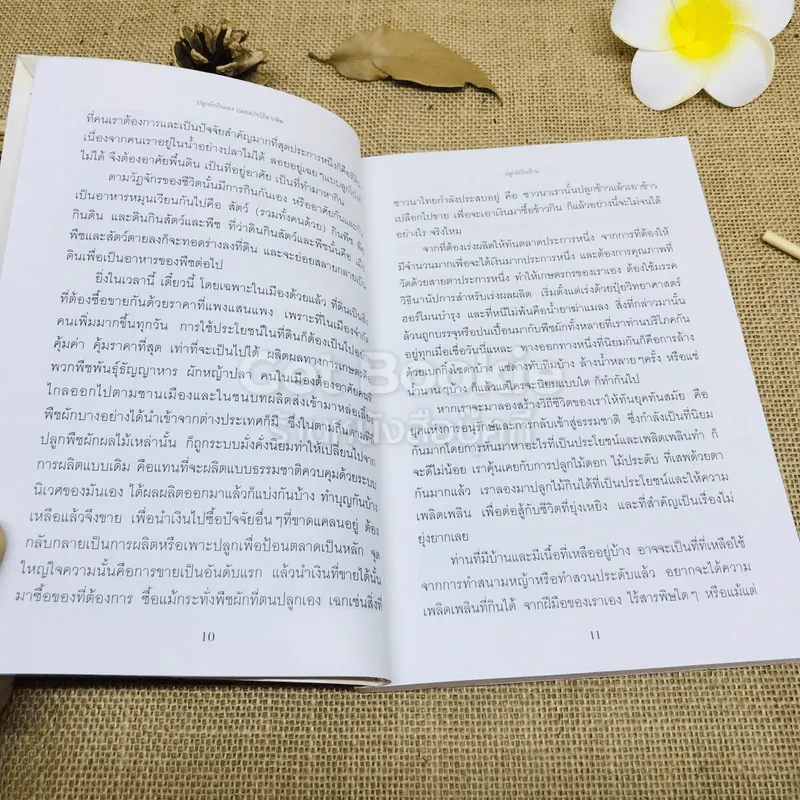 ปลูกผักกินเอง ปลอดภัยไร้สารพิษ
ที่คนเราต้องการและเป็นปัจจัยสำคัญมากที่สุดประการหนึ่งก็คือที่ดิน
เนื่องจากคนเราอยู่ในน้ำอย่างปลาไม่ได้ ลอยอยู่เฉยๆแบบลูกโป่งก็
ไม่ได้ จึงต้องอาศัยพื้นดิน เป็นที่อยู่อาศัย เป็นที่ทำมาหากิน
ตามวัฏจักรของชีวิตนั้นมีการกินกันเอง หรืออาศัยกันและกัน
เป็นอาหารหมุนเวียนกันไปคือ สัตว์ (รวมทั้งคนด้วย) กินพืช พืช
กินดิน และดินกินสัตว์และพืช ที่ว่าดินกินสัตว์และพืชนั้นคือ เมื่อ
พืชและสัตว์ตายลงก็จะทอดร่างลงที่ดิน และจะย่อยสลายกลายเป็น
ดินเพื่อเป็นอาหารของพืชต่อไป
ยิ่งในเวลานี้ เดี๋ยวนี้ โดยเฉพาะในเมืองด้วยแล้ว ที่ดินเป็นสิ่ง
ที่ต้องซื้อขายกันด้วยราคาที่แพงแสนแพง เพราะที่ในเมืองจำกัด
คนเพิ่มมากขึ้นทุกวัน การใช้ประโยชน์ในที่ดินก็ต้องเป็นไปอย่าง
คุ้มค่า คุ้มราคาที่สุด เท่าที่จะเป็นไปได้ ผลิตผลทางการเกษตร
พวกพืชพันธุ์ธัญญาหาร ผักหญ้าปลา คนในเมืองต้องอาศัยคนที่
ไกลออกไปตามชานเมืองและในชนบทผลิตส่งเข้ามาหล่อเลี้ยง
พืชผักบางอย่างได้นำเข้าจากต่างประเทศก็มี ซึ่งในตามถิ่นต่างๆที่
ปลูกพืชผักผลไม้เหล่านั้น ก็ถูกระบบมั่งคั่งนิยมทำให้เปลี่ยนไปจาก
การผลิตแบบเดิม คือแทนที่จะผลิตแบบธรรมชาติควบคุมด้วยระบบ
นิเวศของมันเอง ได้ผลผลิตออกมาแล้วก็แบ่งกันบ้าง ทำบุญกันบ้าง
เหลือแล้วจึงขาย เพื่อนำเงินไปซื้อปัจจัยอื่นๆที่ขาดแคลนอยู่ ต้อง
กลับกลายเป็นการผลิตหรือเพาะปลูกเพื่อป้อนตลาดเป็นหลัก จุด
ใหญ่ใจความนั้นคือการขายเป็นอันดับแรก แล้วนำเงินที่ขายได้นั้น
มาซื้อของที่ต้องการ ซื้อแม้กระทั่งพืชผักที่ตนปลูกเอง เฉกเช่นสิ่งที่
10
ปลูกผักกินบ้าน
ชาวนาไทยกำลังประสบอยู่ คือ ชาวนาเรานั้นปลูกข้าวแล้วเอาข้าว
เปลือกไปขาย เพื่อจะเอาเงินมาซื้อข้าวกิน ก็แล้วอย่างนี้จะไม่จนได้
อย่างไร จริงไหม
จากที่ต้องเร่งผลิตให้ทันตลาดประการหนึ่ง จากการที่ต้องให้
มีจำนวนมากเพื่อจะได้เงินมากประการหนึ่ง และต้องการคุณภาพที่
วัดด้วยสายตาประการหนึ่ง ทำให้เกษตรกรของเราเอง ต้องใช้มรรค
วิธีนานัปการสำหรับเร่งผลผลิต เริ่มตั้งแต่เร่งด้วยปุ๋ยวิทยาศาสตร์
ฮอร์โมนบำรุง และที่หนีไม่พ้นคือน้ำยาฆ่าแมลง สิ่งที่กล่าวมานั้น
ล้วนถูกบรรจุหรือปนเปื้อนมากับพืชผักทั้งหลายที่เราท่านบริโภคกัน
อยู่ทุกเมื่อเชื่อวันนี่แหละ ทางออกทางหนึ่งที่นิยมกันก็คือการล้าง
ด้วยเบกกิ้งโซดาบ้าง แช่ด่างทับทิมบ้าง ล้างน้ำหลายๆครั้ง หรือแช่
น้ำนานๆบ้าง ก็แล้วแต่ใครจะนิยมแบบใด ก็ทำกันไป
หากเราจะมาลองสร้างวิถีชีวิตของเราให้ทันยุคทันสมัย คือ
ยุคแห่งการอนุรักษ์และการกลับเข้าสู่ธรรมชาติ ซึ่งกำลังเป็นที่นิยม
กันมากโดยการหันมาหาอะไรที่เป็นประโยชน์และเพลิดเพลินทำ ก็
จะดีไม่น้อย เราคุ้นเคยกับการปลูกไม้ดอก ไม้ประดับ ที่เสพด้วยตา
กันมากแล้ว เราลองมาปลูกไม้กินได้ที่เป็นประโยชน์และให้ความ
เพลิดเพลิน เพื่อต่อสู้กับชีวิตที่ยุ่งเหยิง และที่สำคัญเป็นเรื่องไม่
ยุ่งยากเลย
ท่านที่มีบ้านและมีเนื้อที่เหลืออยู่บ้าง อาจจะเป็นที่ที่เหลือใช้
จากการทำสนามหญ้าหรือทำสวนประดับแล้ว อยากจะได้ความ
เพลิดเพลินที่กินได้ จากฝีมือของเราเอง ไร้สารพิษใดๆ หรือแม้แต่
11